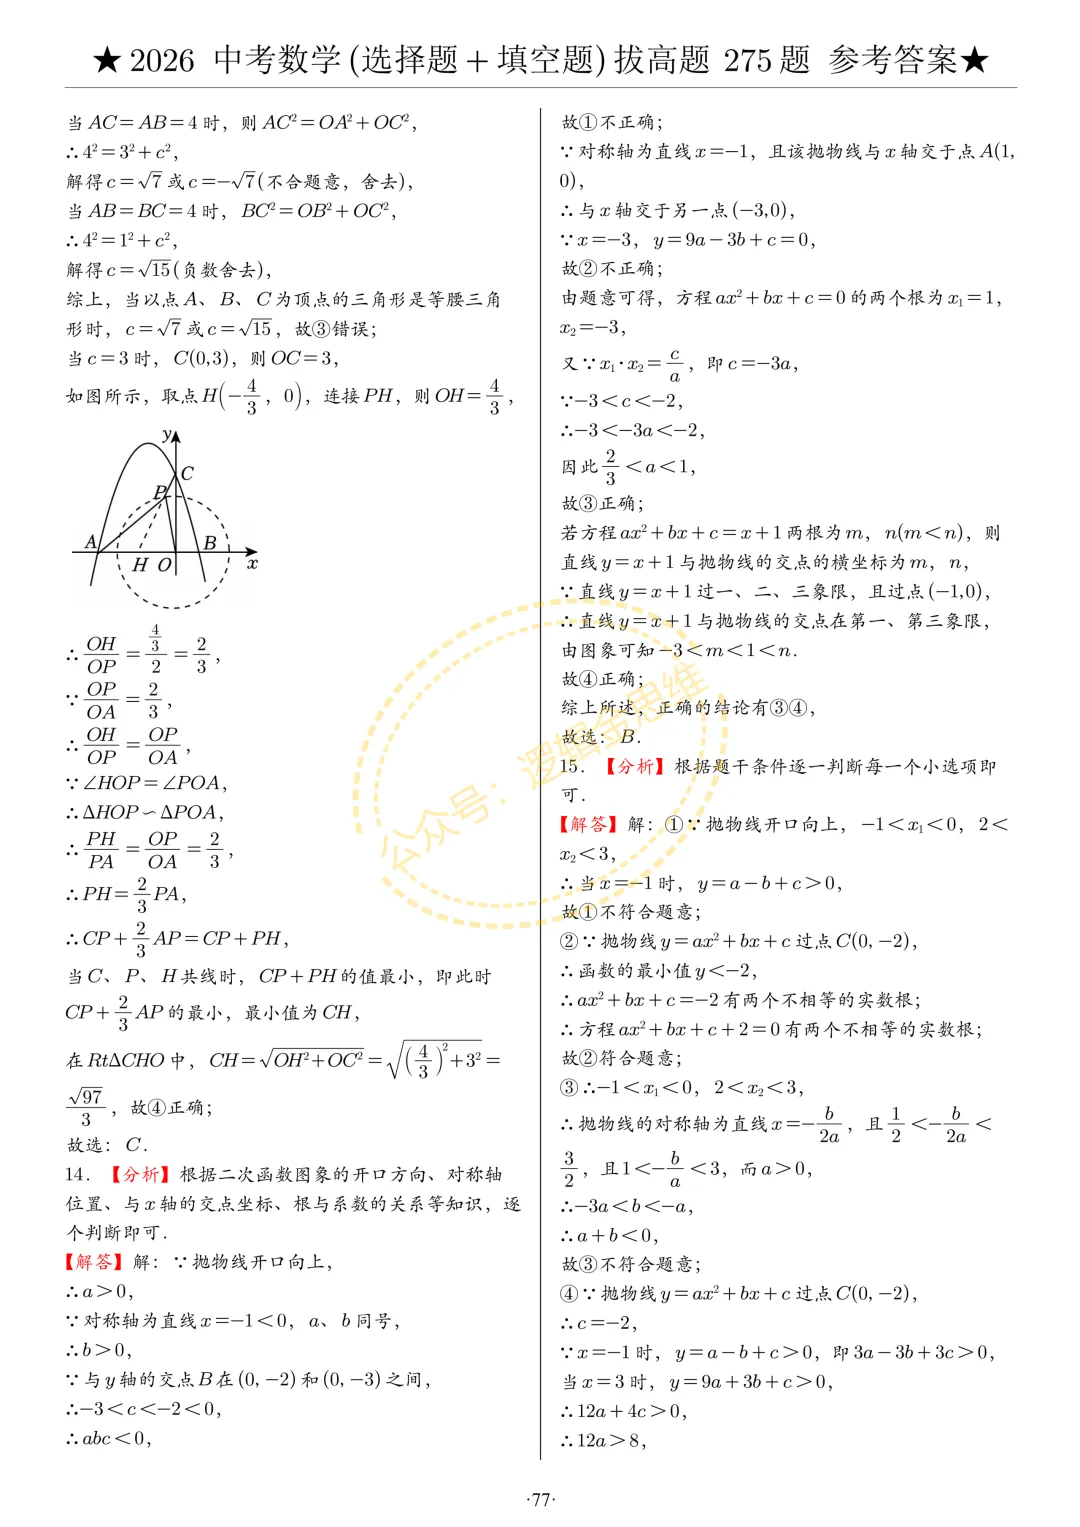 ★2026 中考数学(选择题+填空题)拔高题 275题 参考答案★
当AC=AB=4时，则AC²=OA²+OC²，
∴4²=3²+c²，
解得c=√7或c=-√7(不合题意，舍去)，
当AB=BC=4时，BC²=OB²+OC²，
∴4²=1²+c²，
解得c=√15(负数舍去)，
综上，当以点A、B、C为顶点的三角形是等腰三角
形时，c=√7或c=√15，故③错误；
当c=3时，C(0,3)，则OC=3，
如图所示，取点H(-4/3，0)，连接PH，则OH=4/3，
y
C
P
A
B
H O
x
∴OH/OP=(4/3)/2=2/3，
∵OP/OA=2/3，
∴OH/OP=OP/OA，
∵∠HOP=∠POA，
∴ΔHOP∽ΔPOA，
∴PH/PA=OP/OA=2/3，
∴PH=2/3PA，
∴CP+2/3AP=CP+PH，
当C、P、H共线时，CP+PH的值最小，即此时
CP+2/3AP的最小，最小值为CH，
在RtΔCHO中，CH=√(OH²+OC²)=√((4/3)²+3²)=
√97/3，故④正确；
故选：C．
14．【分析】根据二次函数图象的开口方向、对称轴
位置、与x轴的交点坐标、根与系数的关系等知识，逐
个判断即可．
【解答】解：∵抛物线开口向上，
∴a>0，
∵对称轴为直线x=-1<0，a、b同号，
∴b>0，
∵与y轴的交点B在(0,-2)和(0,-3)之间，
∴-3<c<-2<0，
∴abc<0，
故①不正确；
∵对称轴为直线x=-1，且该抛物线与x轴交于点A(1,
0)，
∴与x轴交于另一点(-3,0)，
∵x=-3，y=9a-3b+c=0，
故②不正确；
由题意可得，方程ax²+bx+c=0的两个根为x₁=1，
x₂=-3，
又∵x₁·x₂=c/a，即c=-3a，
∵-3<c<-2，
∴-3<-3a<-2，
因此2/3<a<1，
故③正确；
若方程ax²+bx+c=x+1两根为m，n(m<n)，则
直线y=x+1与抛物线的交点的横坐标为m，n，
∵直线y=x+1过一、二、三象限，且过点(-1,0)，
∴直线y=x+1与抛物线的交点在第一、第三象限，
由图象可知-3<m<1<n．
故④正确；
综上所述，正确的结论有③④，
故选：B．
15．【分析】根据题干条件逐一判断每一个小选项即
可．
【解答】解：①∵抛物线开口向上，-1<x₁<0，2<
x₂<3，
∴当x=-1时，y=a-b+c>0，
故①不符合题意；
②∵抛物线y=ax²+bx+c过点C(0,-2)，
∴函数的最小值y<-2，
∴ax²+bx+c=-2有两个不相等的实数根；
∴方程ax²+bx+c+2=0有两个不相等的实数根；
故②符合题意；
③∴-1<x₁<0，2<x₂<3，
∴抛物线的对称轴为直线x=-b/2a，且1/2<-b/2a<
3/2，且1<-b/a<3，而a>0，
∴-3a<b<-a，
∴a+b<0，
故③不符合题意；
④∵抛物线y=ax²+bx+c过点C(0,-2)，
∴c=-2，
∵x=-1时，y=a-b+c>0，即3a-3b+3c>0，
当x=3时，y=9a+3b+c>0，
∴12a+4c>0，
∴12a>8，
公众号：逻辑金思维
·77·